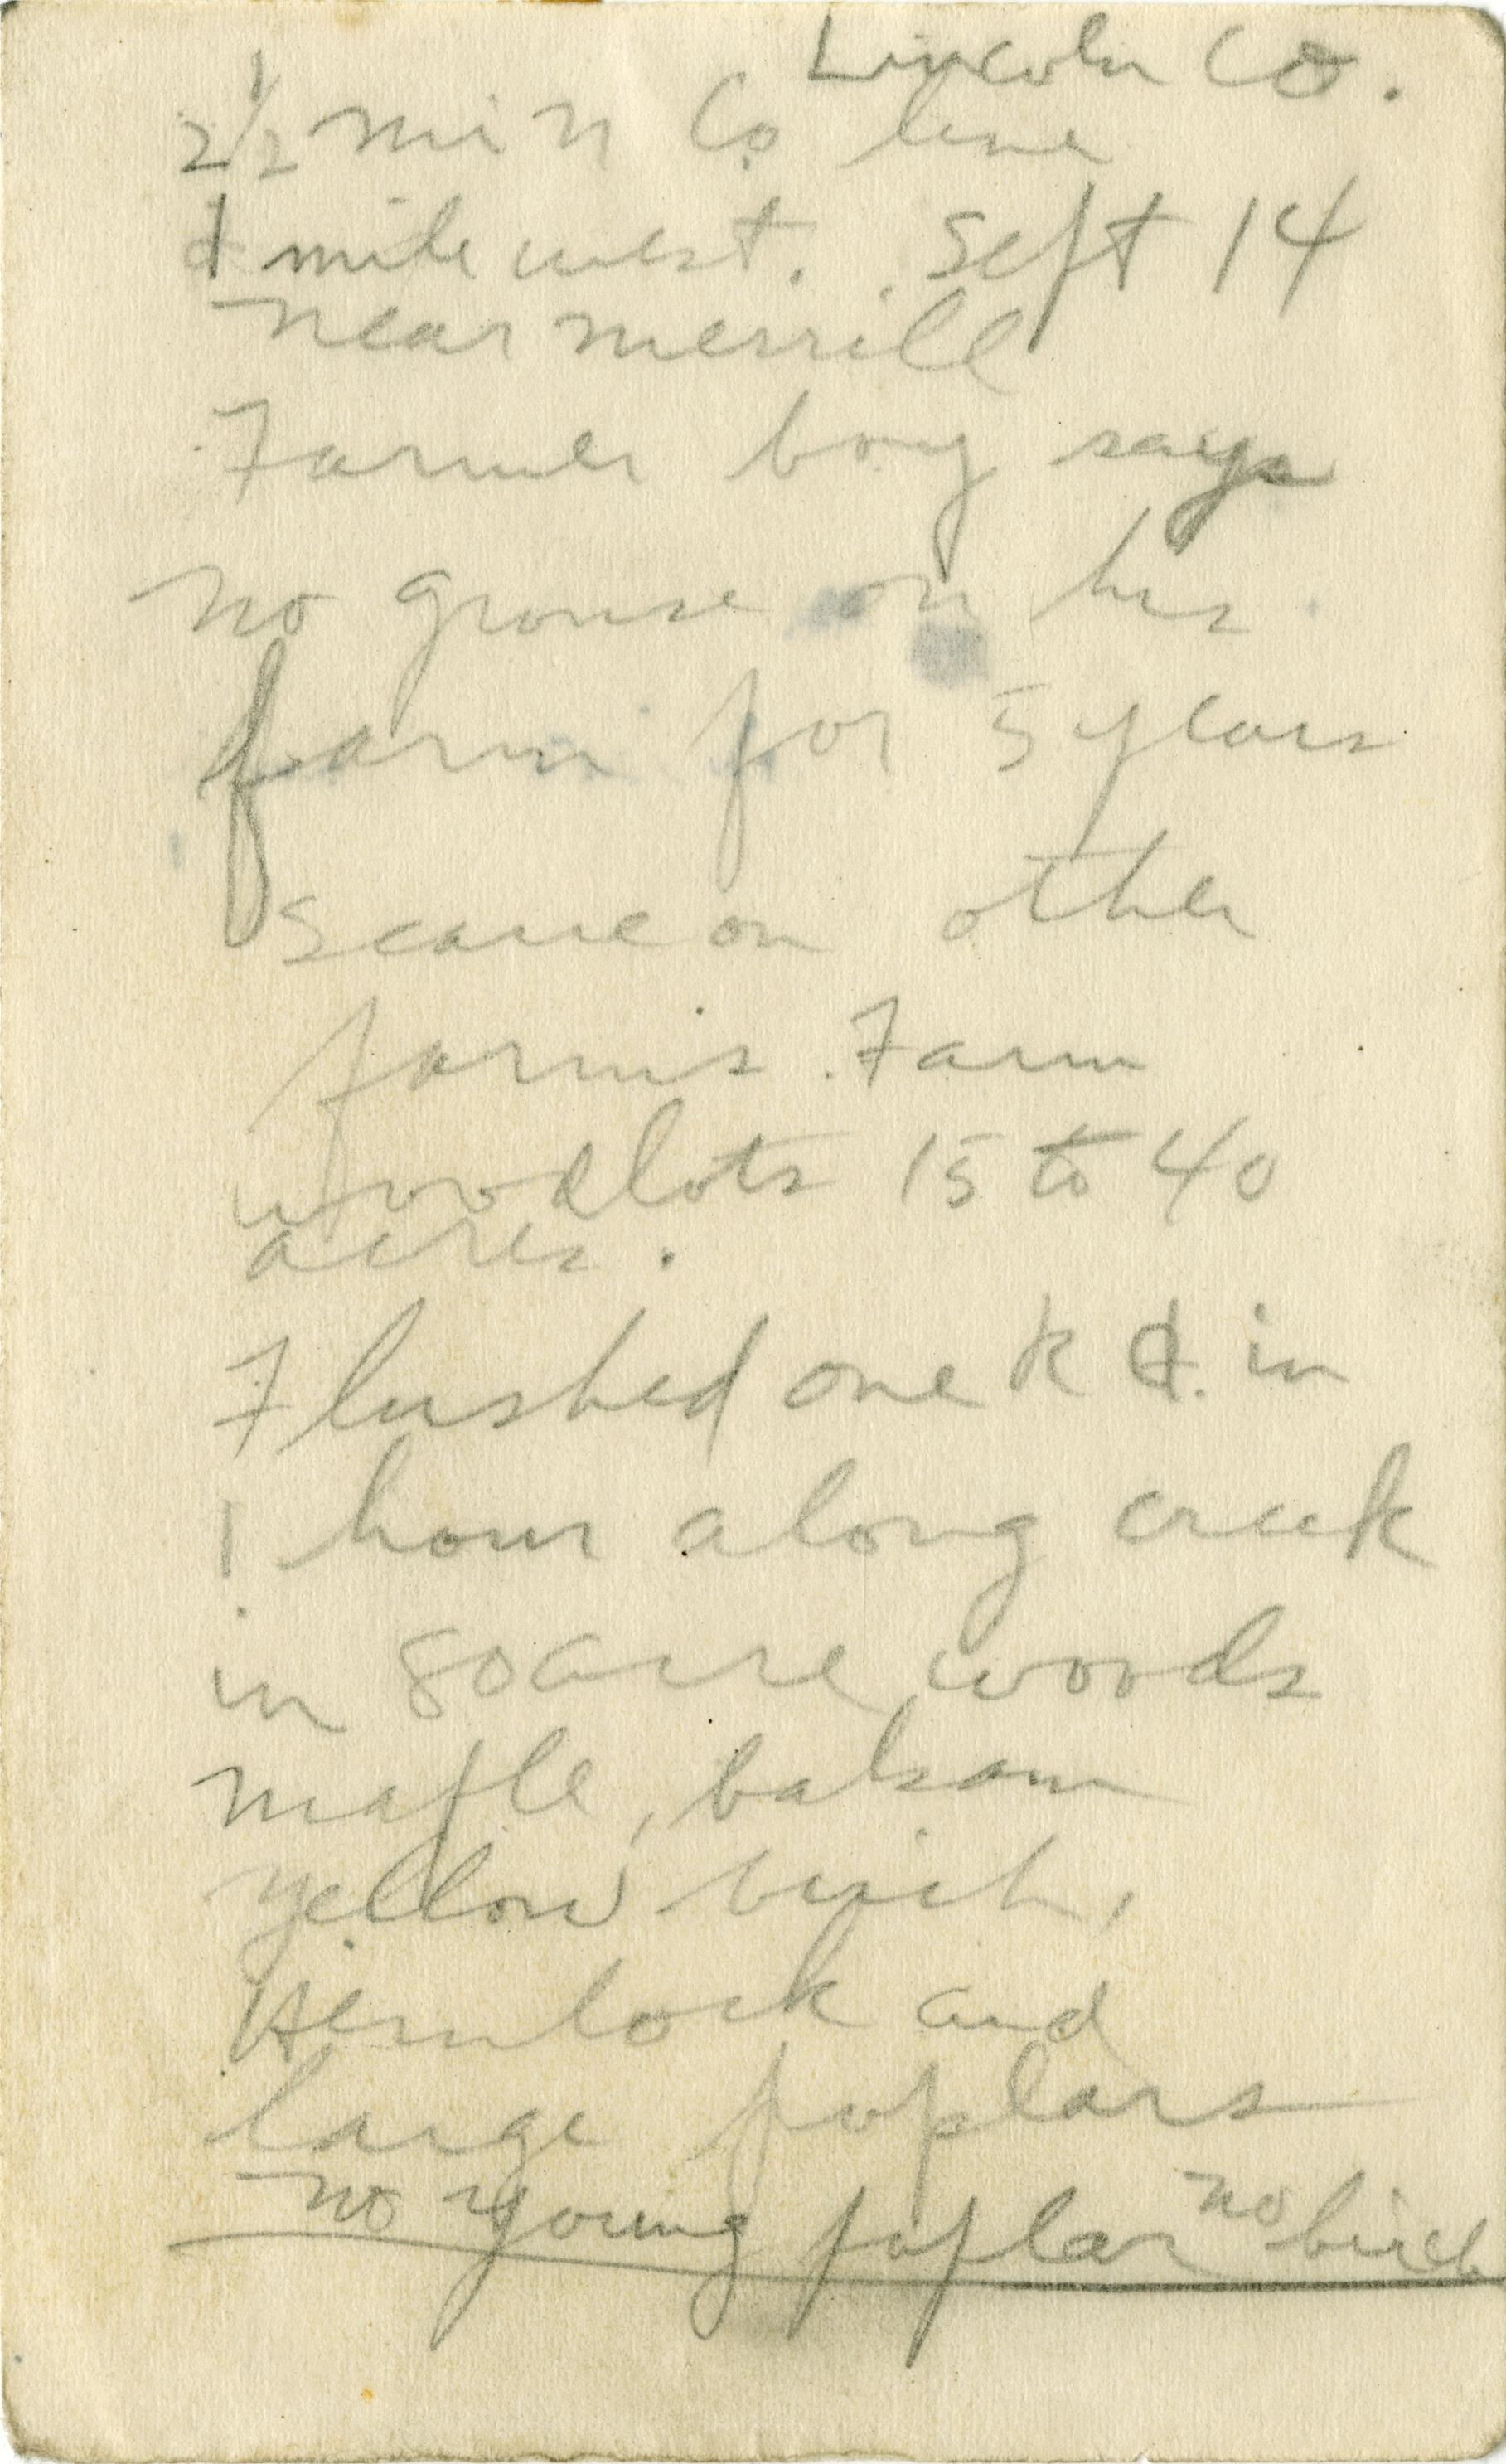 Lincoln Co.
2 1/2 mi N Co line
1 mile west. Sept 14
near Merrill
Farmer boy says
no grouse on his
farm for 5 years
Scarce on other
farms. Farm
woodlots 15 to 40
acres.
Flushed one R G. in
1 hour along creek
in 80 acre woods
maple, balsam
yellow birch,
Hemlock and
large poplars
no young poplar no birch